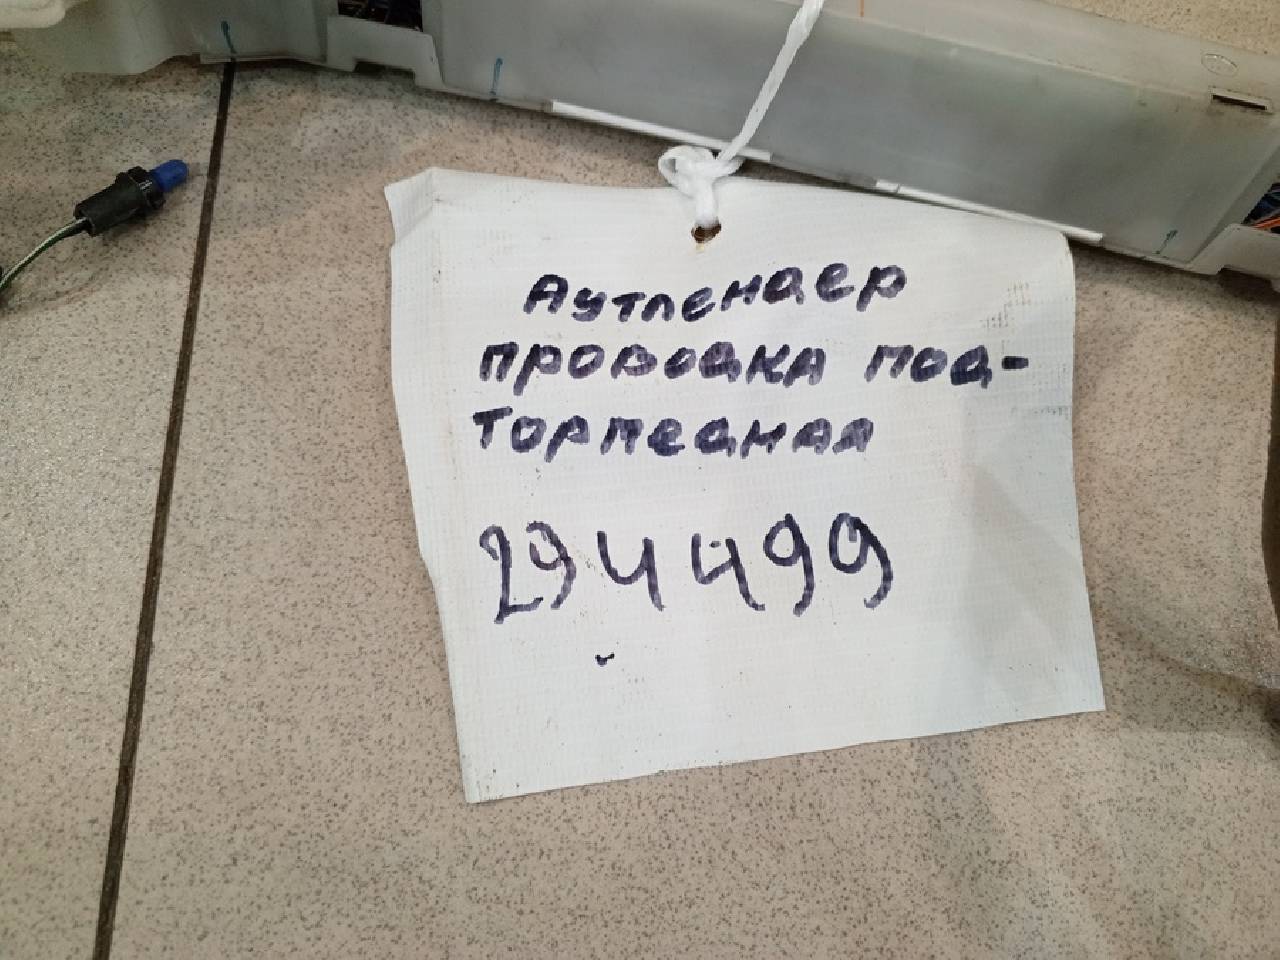 Аутленаер
проводка под-
торпедная
294499